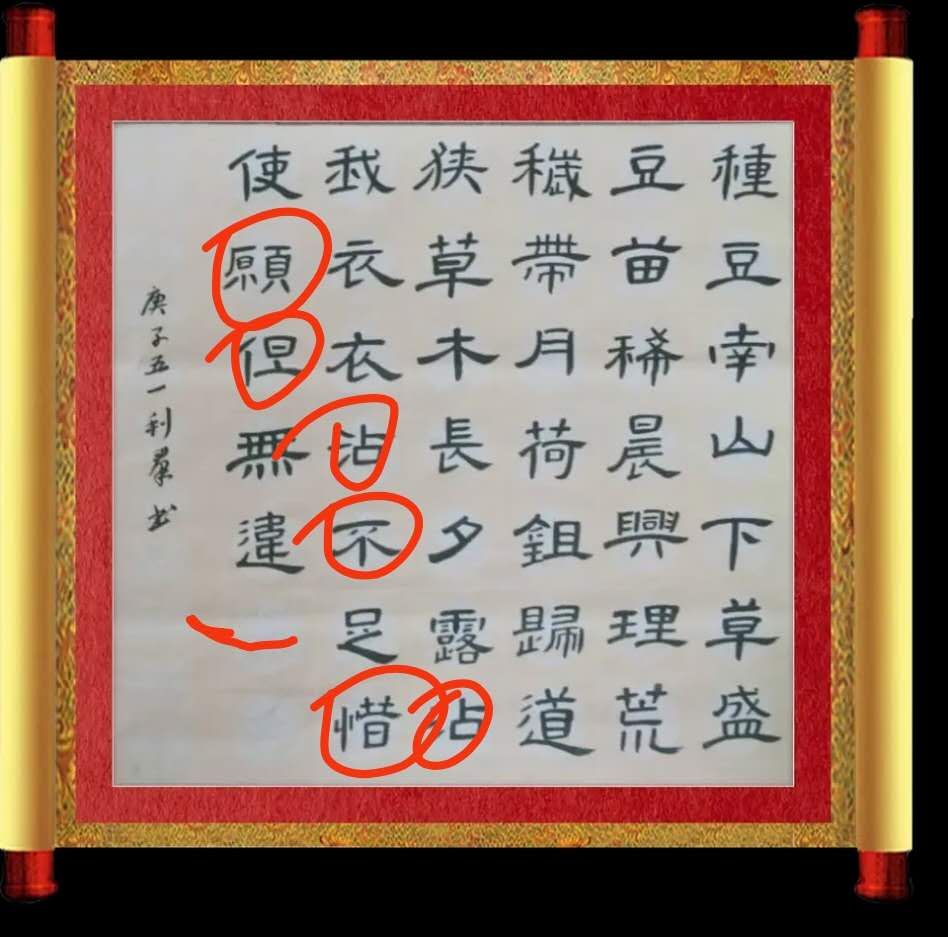 種豆南山下草盛
豆苗稀晨興理荒
穢帶月荷鉏歸道
狭草木長夕露沾
我衣衣沾不足惜
使願但無違
庚子五一利羣书